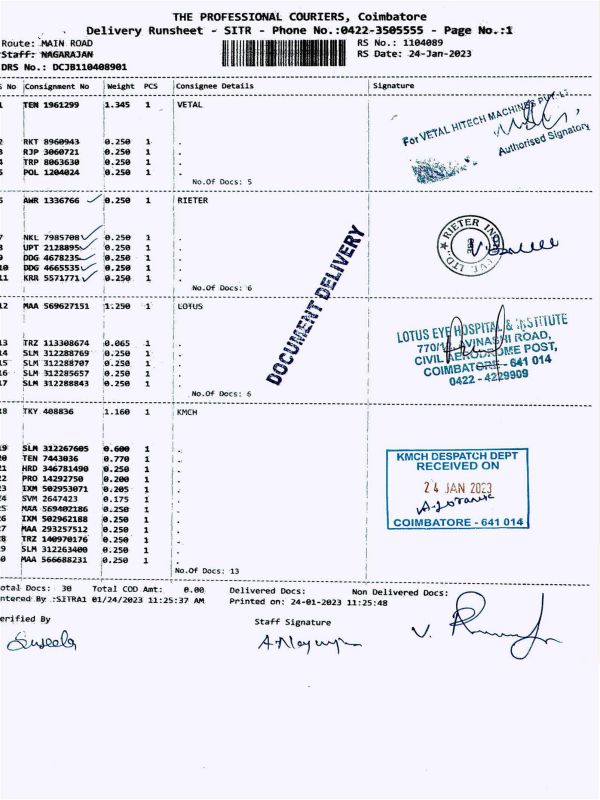 THE PROFESSIONAL COURIERS, Coimbatore
Delivery Runsheet - SITR - Phone No.:0422-3505555 - Page No.:1
Route: MAIN ROAD
RS No.: 1104089
Staff: NAGARAJAN
RS Date: 24-Jan-2023
DRS No.: DCJB110408901
S No Consignment No Weight PCS Consignee Details Signature
1 TEN 1961299 1.345 1 VETAL
For VETAL HITECH MACHINES PVT. LT
Authorised Signatory
2 RKT 8960943 0.250 1 .
3 RJP 3060721 0.250 1 .
4 TRP 8063630 0.250 1 .
5 POL 1204024 0.250 1 .
No.Of Docs: 5
6 AWR 1336766 0.250 1 RIETER
7 NKL 7985708 0.250 1 .
8 UPT 2128895 0.250 1 .
9 DDG 4678235 0.250 1 .
10 DDG 4665535 0.250 1 .
11 KRR 5571771 0.250 1 .
No.Of Docs: 6
RIETER IND
PVT. LTD.
DOCUMENT DELIVERY
12 MAA 569627151 1.250 1 LOTUS
LOTUS EYE HOSPITAL & INSTITUTE
770/1 AVINASHI ROAD,
CIVIL AERODROME POST,
COIMBATORE - 641 014
0422 - 4229909
13 TRZ 113308674 0.065 1 .
14 SLM 312288769 0.250 1 .
15 SLM 312288707 0.250 1 .
16 SLM 312285657 0.250 1 .
17 SLM 312288843 0.250 1 .
No.Of Docs: 6
18 TKY 408836 1.160 1 KMCH
19 SLM 312267605 0.600 1 .
20 TEN 7443036 0.770 1 .
21 HRD 346781490 0.250 1 .
22 PRO 14292750 0.200 1 .
23 IXM 502953071 0.205 1 .
24 SVM 2647423 0.175 1 .
25 MAA 569402186 0.250 1 .
26 IXM 502962188 0.250 1 .
27 MAA 293257512 0.250 1 .
28 TRZ 140970176 0.250 1 .
29 SLM 312263400 0.250 1 .
30 MAA 566688231 0.250 1 .
No.Of Docs: 13
KMCH DESPATCH DEPT
RECEIVED ON
24 JAN 2023
COIMBATORE - 641 014
otal Docs: 30 Total COD Amt: 0.00 Delivered Docs: Non Delivered Docs:
ntered By :SITRA1 01/24/2023 11:25:37 AM Printed on: 24-01-2023 11:25:48
erified By
Staff Signature